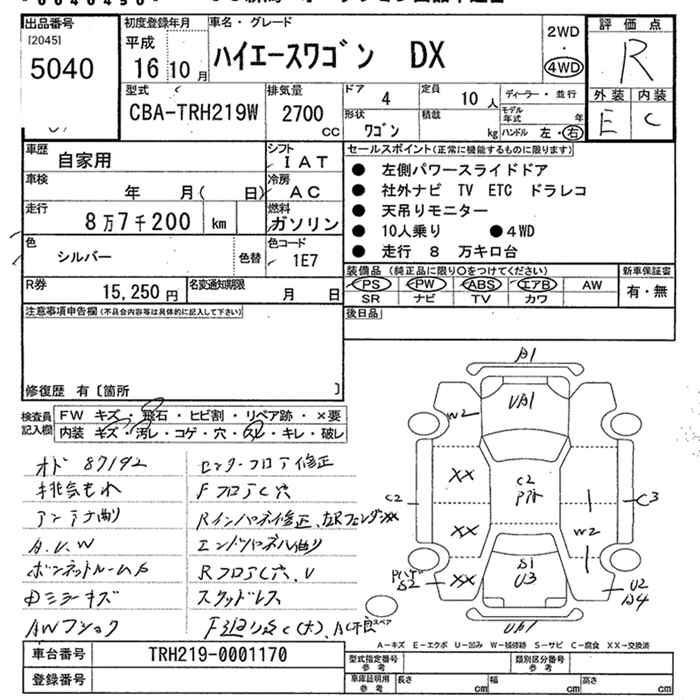 出品番号
[2045]
5040
初度登録年月
平成
16 10 月
車名・グレード
ハイエースワゴン DX
2WD
・
4WD
評価点
R
外装 内装
E C
型式
CBA-TRH219W
排気量
2700
CC
ドア 4
定員 10 人
ディーラー・並行
形状 ワゴン
積載 kg
モデル年式 年
ハンドル 左・右
車歴
自家用
シフト
IAT
車検 年 月( 日)
冷房
AC
走行
8万7千200 km
燃料
ガソリン
色
シルバー
色替
色コード
1E7
R券
15,250 円
名変通知期限
月 日
セールスポイント(正常に機能するものに限ります)
● 左側パワースライドドア
● 社外ナビ TV ETC ドラレコ
● 天吊りモニター
● 10人乗り ●4WD
● 走行 8 万キロ台
装備品 (純正品に限り○をつけてください)
PS PW ABS エアB AW
SR ナビ TV カワ
新車保証書
有・無
後日品
注意事項申告欄(不具合内容等は具体的に記入して下さい)
修復歴 有〔箇所 〕
検査員記入欄
FW キズ・飛石・ヒビ割・リペア跡・×要
内装 キズ・汚レ・コゲ・穴・スレ・キレ・破レ
オド 87192
排気もれ
アンテナ曲り
A.U.W
ボンネットルームP
センターフロア修正
FフロアC穴
Rインパネ修正、左RフェンダーXX
エンドパネル曲り
RフロアC穴、U
スタッドレス
A1
UA1
W2
XX
XX
XX
C2
C2
C3
W2
S1
U3
S2
U2
UA1
スペア
A-キズ E-エクボ U-凹み W-補修跡 S-サビ C-腐食 XX-交換済
車台番号
TRH219-0001170
登録番号
型式指定番号
参考
類別区分番号
参考
車庫証明用
参考
長さ cm
幅 cm
高さ cm